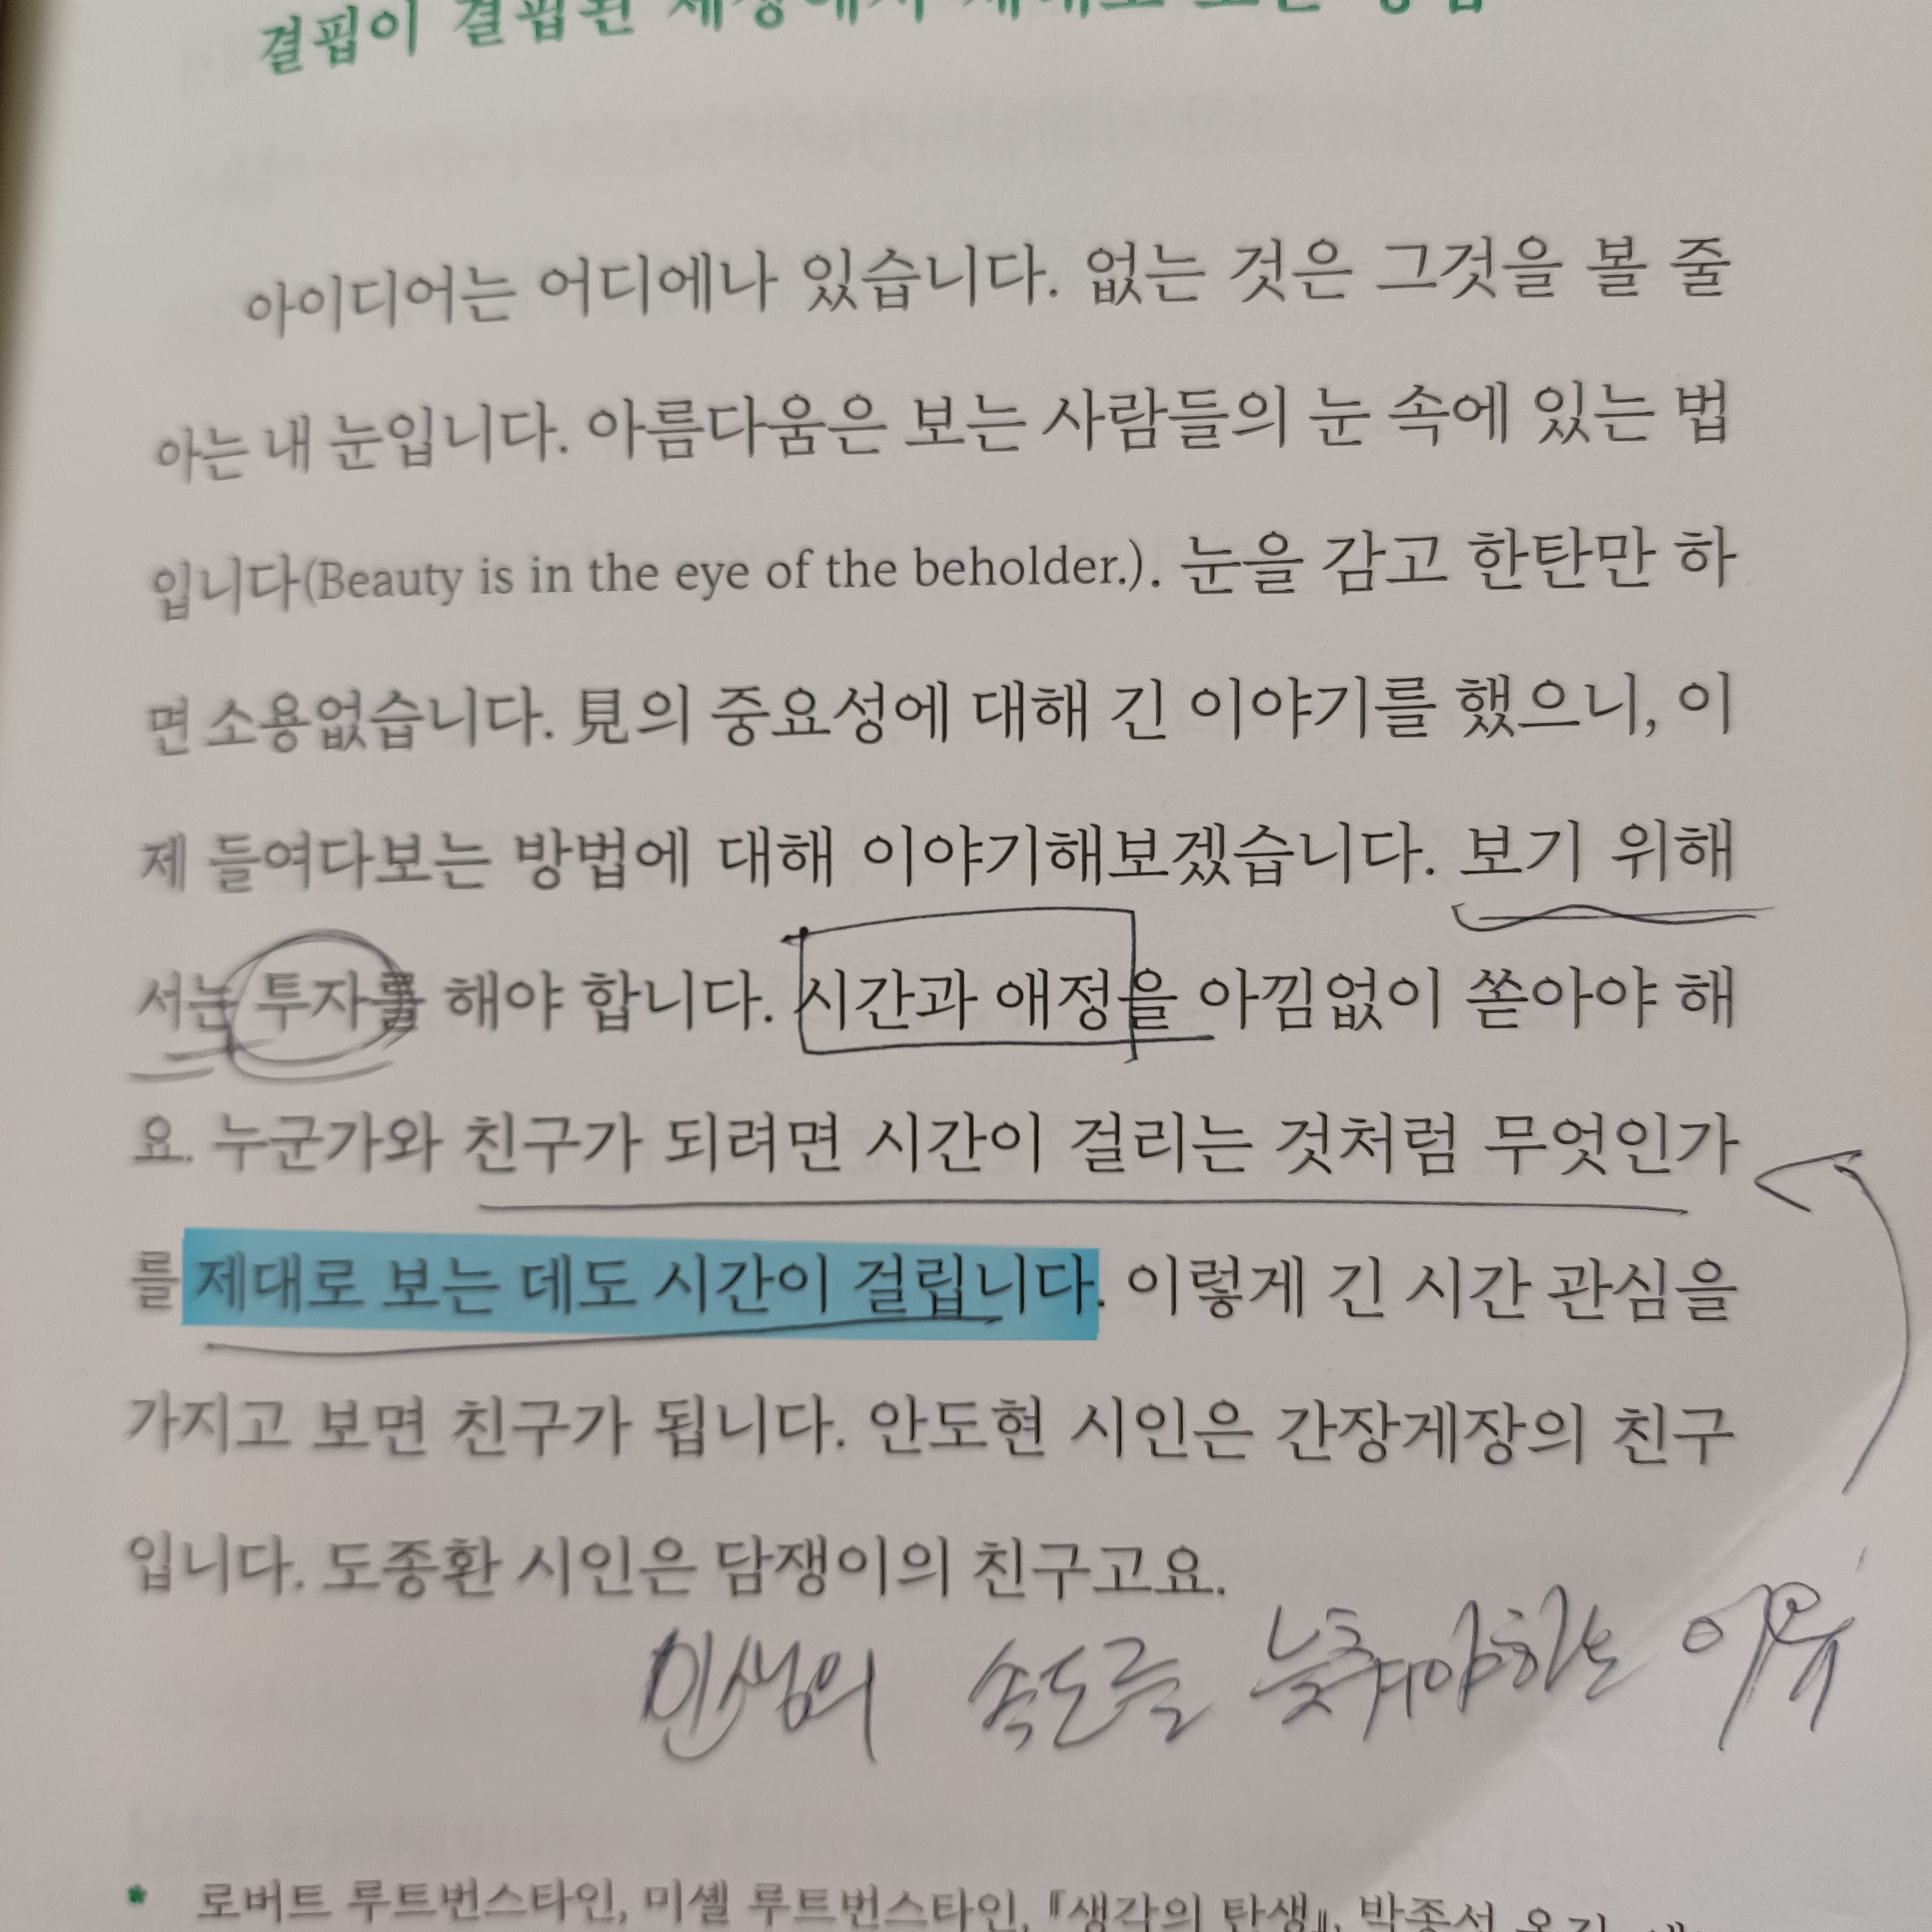 결핍이 결핍된 세상에서 제대로 보는 방법
아이디어는 어디에나 있습니다. 없는 것은 그것을 볼 줄
아는 내 눈입니다. 아름다움은 보는 사람들의 눈 속에 있는 법
입니다(Beauty is in the eye of the beholder.). 눈을 감고 한탄만 하
면 소용없습니다. 見의 중요성에 대해 긴 이야기를 했으니, 이
제 들여다보는 방법에 대해 이야기해보겠습니다. 보기 위해
서는 투자를 해야 합니다. 시간과 애정을 아낌없이 쏟아야 해
요. 누군가와 친구가 되려면 시간이 걸리는 것처럼 무엇인가
를 제대로 보는 데도 시간이 걸립니다. 이렇게 긴 시간 관심을
가지고 보면 친구가 됩니다. 안도현 시인은 간장게장의 친구
입니다. 도종환 시인은 담쟁이의 친구고요.
인생의 속도를 늦춰야하는 이유
* 로버트 루트번스타인, 미셸 루트번스타인, 『생각의 탄생』, 박종성 옮김,